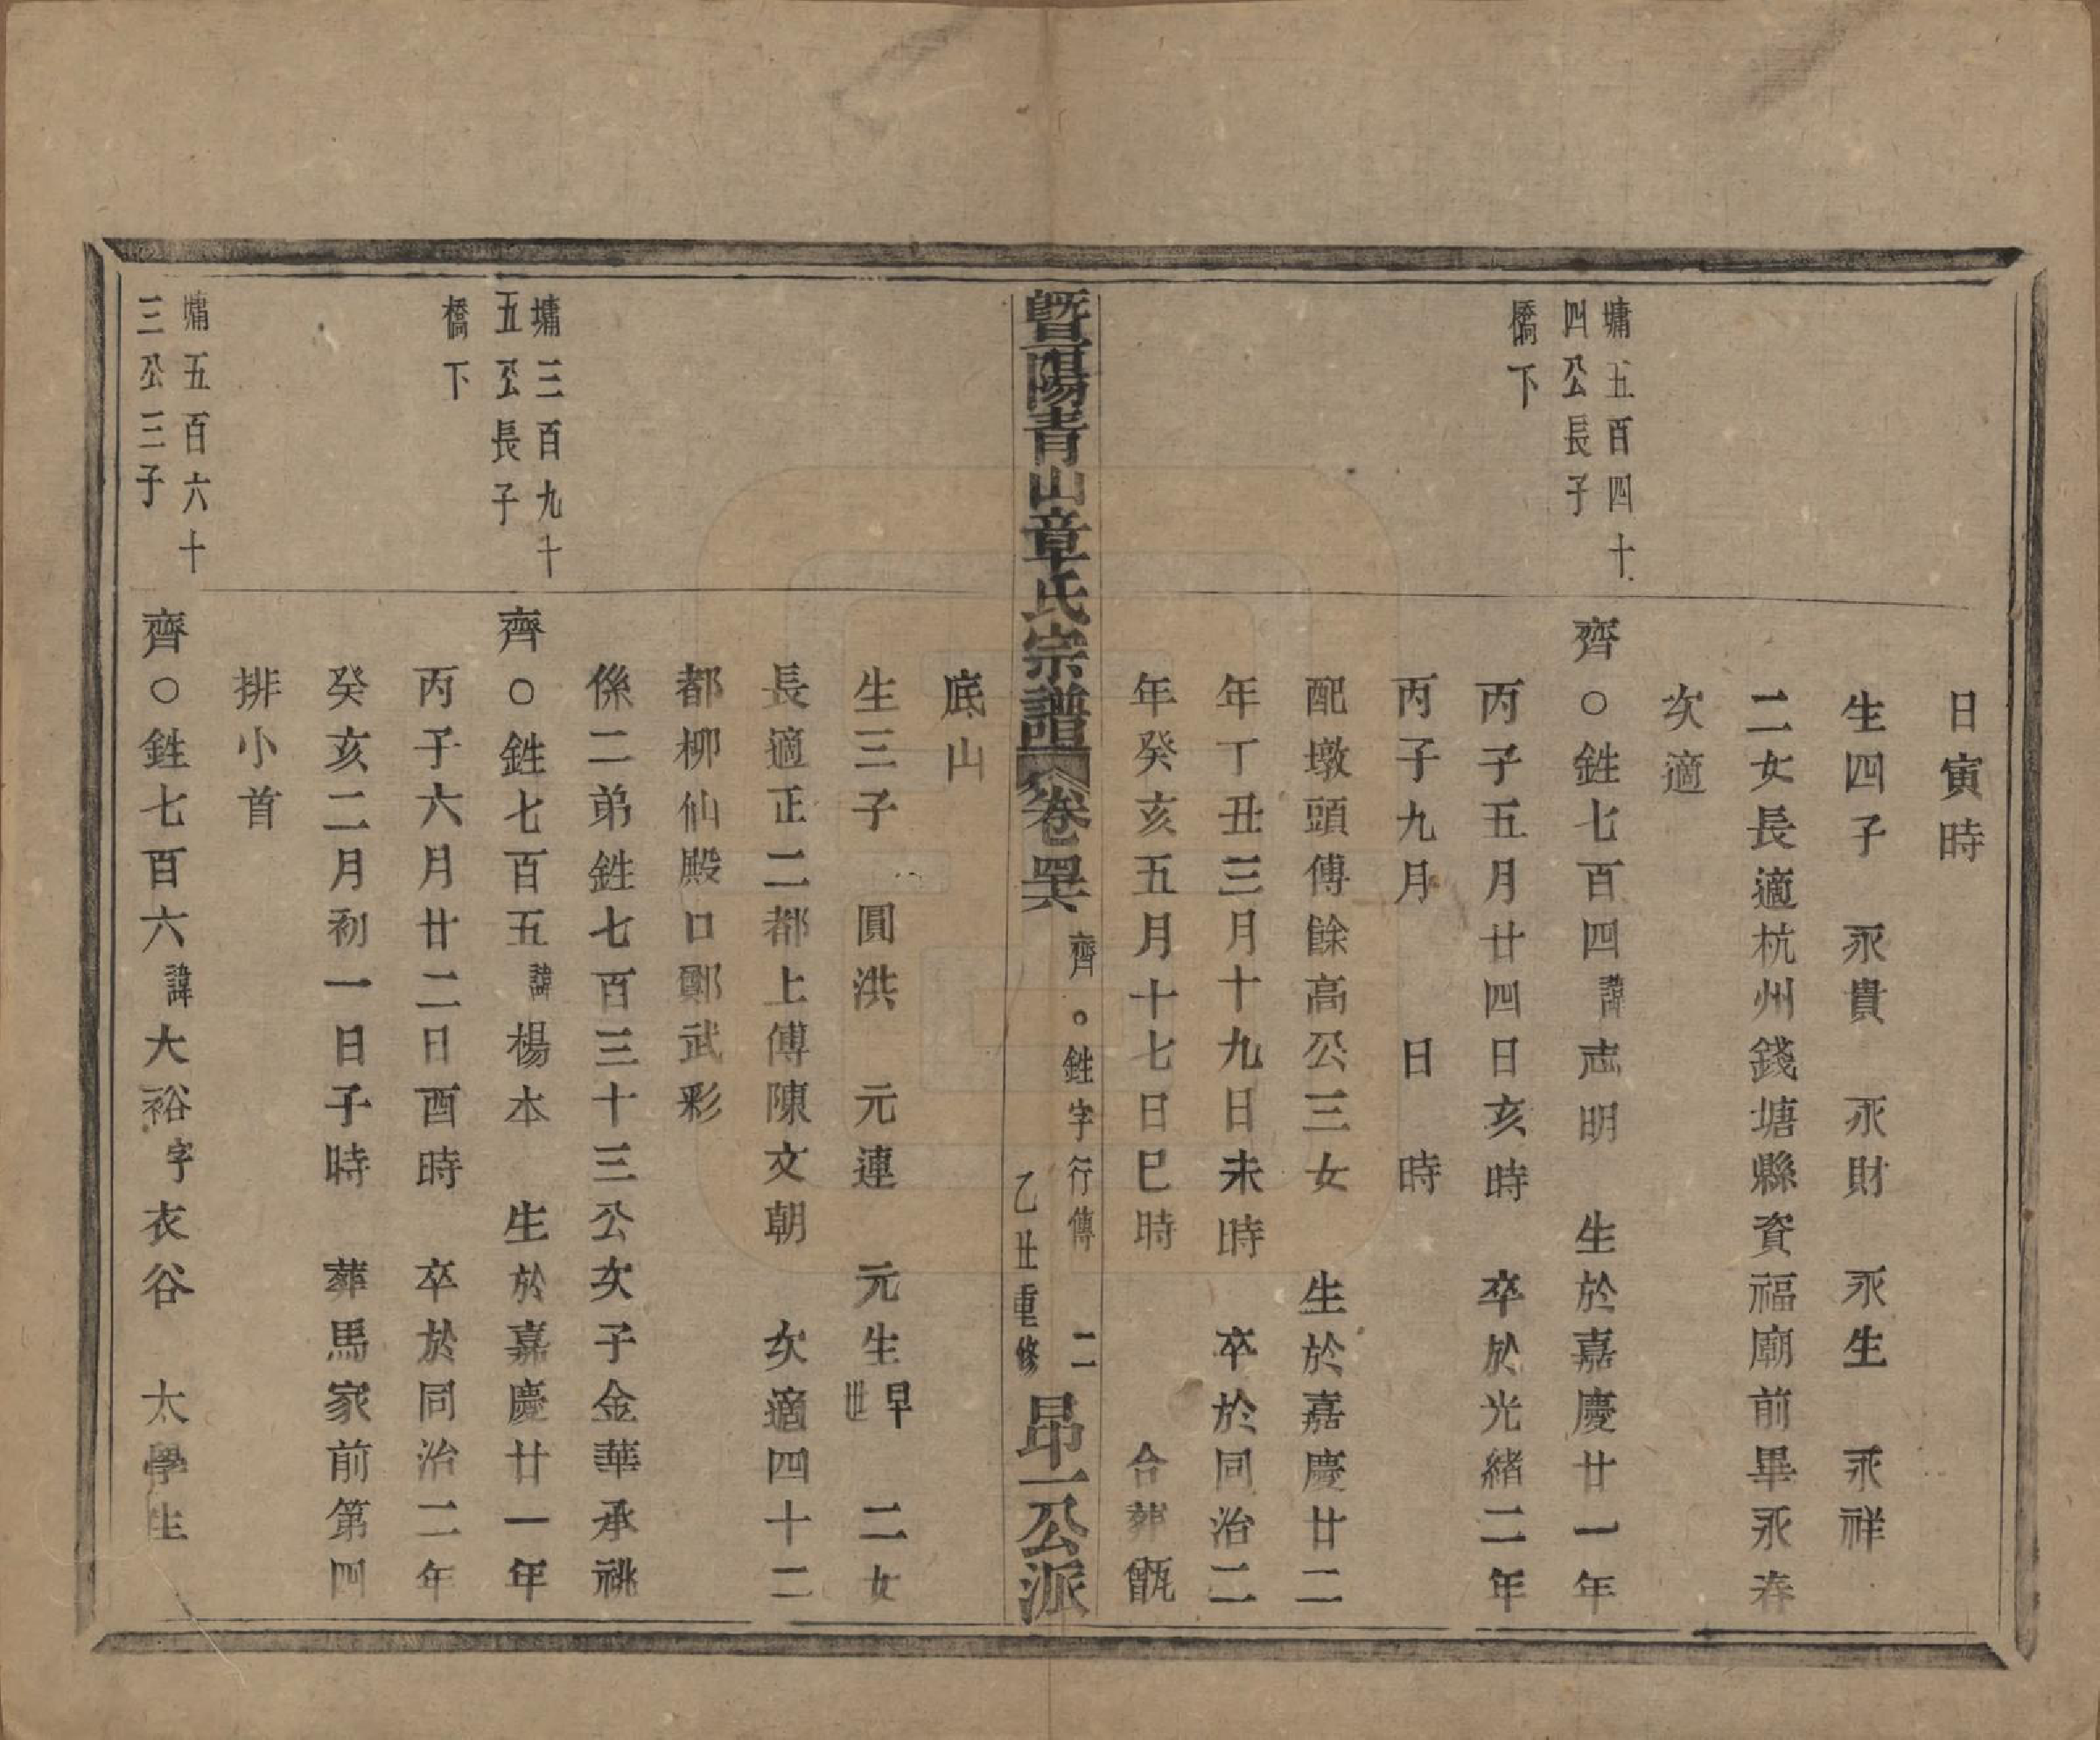 日寅時
生四子　永貴　永財　永生　永祥
二女長適杭州錢塘縣資福廟前畢永春
次適
墉五百四十
四公長子
橋下
齊○鉎七百四諱志明　生於嘉慶廿一年
丙子五月廿四日亥時　卒於光緒二年
丙子九月　日　時
配墩頭傅餘高公三女　生於嘉慶廿二
年丁丑三月十九日未時　卒於同治二
年癸亥五月十七日巳時　合葬甑
暨陽青山章氏宗譜　卷四六　齊○鉎字行傳　二　乙丑重修　昂一公派
底山
生三子　圓洪　元連　元生早世　二女
長適正二都上傅陳文朝　次適四十二
都柳仙殿口鄭武彩
係二弟鉎七百三十三公次子金華承祧
墉三百九十
五公長子
橋下
齊○鉎七百五諱楊本　生於嘉慶廿一年
丙子六月廿二日酉時　卒於同治二年
癸亥二月初一日子時　葬馬家前第四
排小首
墉五百六十
三公三子
齊○鉎七百六諱大裕字衣谷　太學生